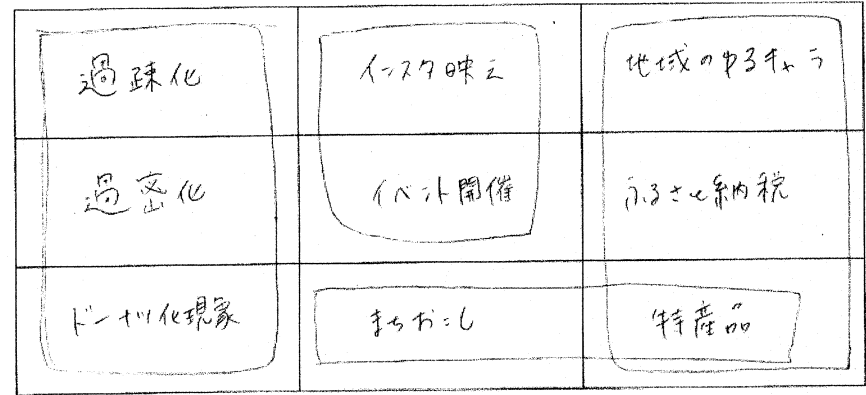 過疎化 インスタ映え 地域のゆるキャラ
過密化 イベント開催 ふるさと納税
ドーナツ化現象 まちおこし 特産品